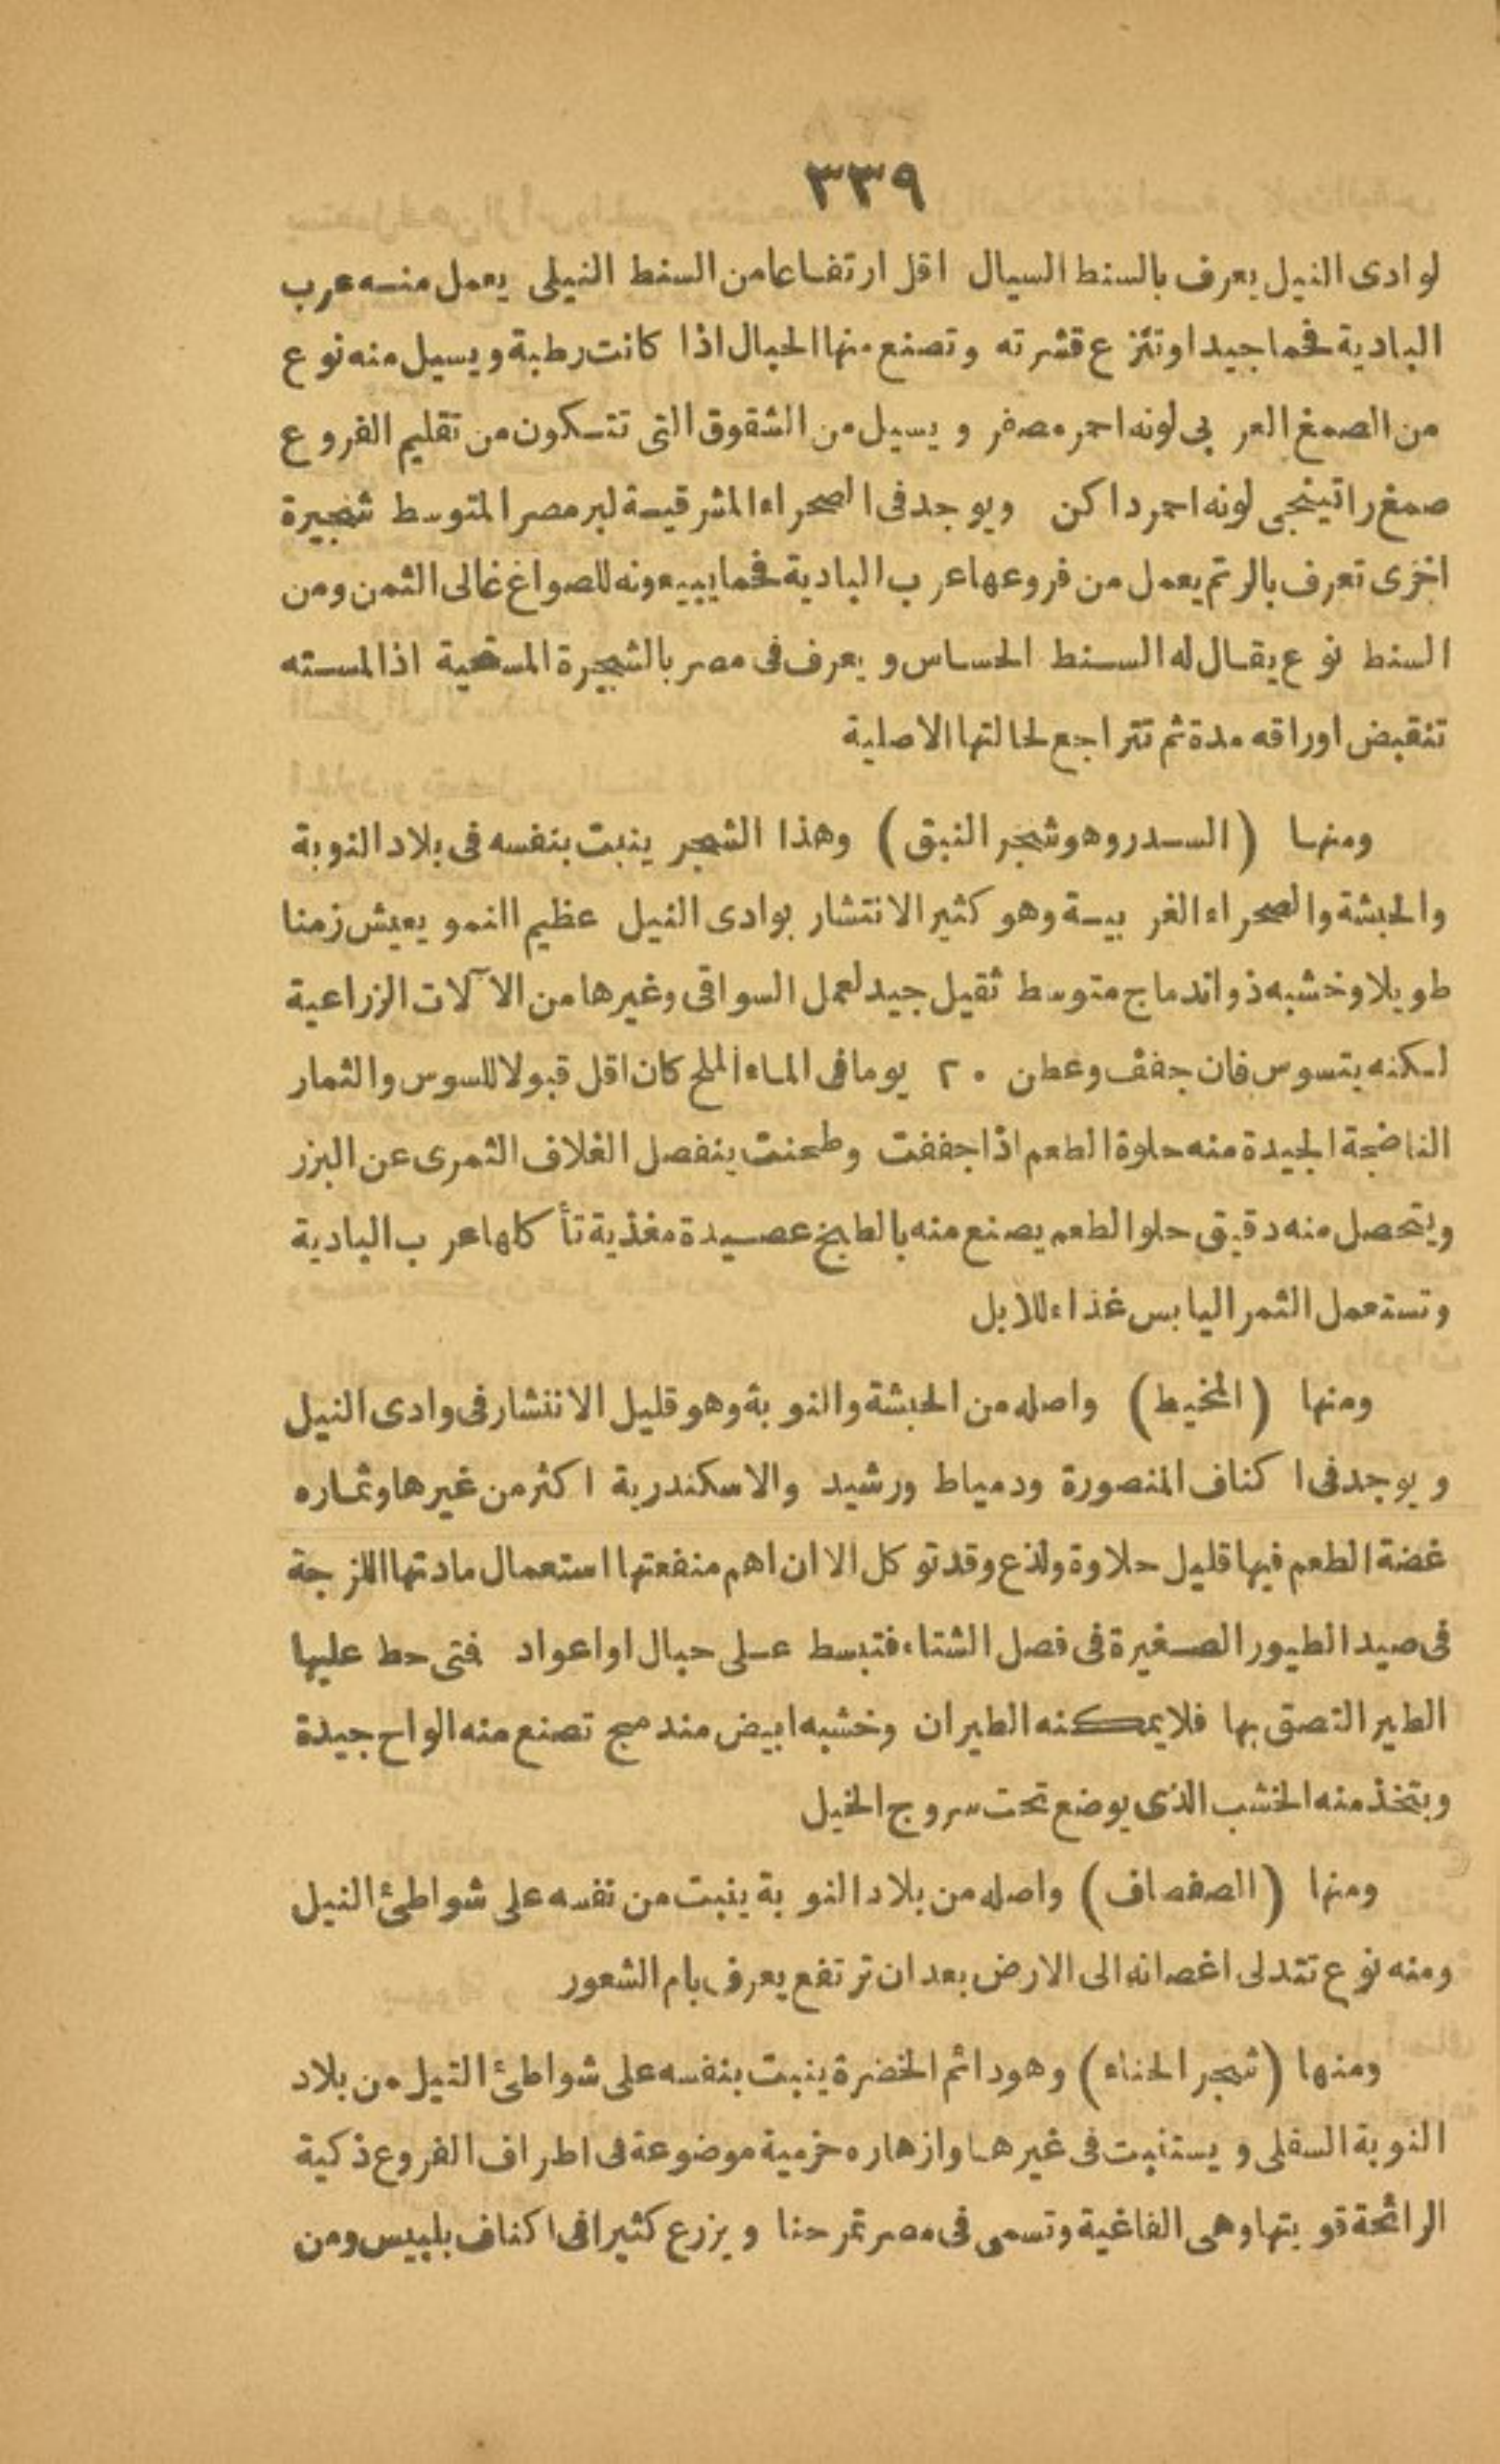 ٣٣٩
لوادى النيل يعرف بالسنط السيال اقل ارتفاعا من السنط النيلى يعمل منه عرب
البادية فحما جيدا وتنزع قشرته وتصنع منها الحبال اذا كانت رطبة ويسيل منه نوع
من الصمغ العربى لونه احمر مصفر ويسيل من الشقوق التى تتكون من تقليم الفروع
صمغ راتينجى لونه احمر داكن ويوجد فى الصحراء الشرقية لبر مصر المتوسط شجيرة
اخرى تعرف بالرتم يعمل من فروعها عرب البادية فحما يبيعونه للصواغ غالى الثمن ومن
السنط نوع يقال له السنط الحساس ويعرف فى مصر بالشجرة المستحية اذا لمسته
تنقبض اوراقه مدة ثم تتراجع لحالتها الاصلية
ومنها (السدر وهو شجر النبق) وهذا الشجر ينبت بنفسه فى بلاد النوبة
والحبشة والصحراء الغربية وهو كثير الانتشار بوادى النيل عظيم النمو يعيش زمنا
طويلا وخشبه ذو اندماج متوسط ثقيل جيد لعمل السواقى وغيرها من الآلات الزراعية
لكنه يتسوس فان جفف وعطن ٢٠ يوما فى الماء الملح كان اقل قبولا للسوس والثمار
الناضجة الجيدة منه حلوة الطعم اذا جففت وطحنت ينفصل الغلاف الثمرى عن البزر
ويتحصل منه دقيق حلو الطعم يصنع منه بالطبخ عصيدة مغذية تأكلها عرب البادية
وتستعمل الثمر اليابس غذاء للابل
ومنها (المخيط) واصله من الحبشة والنوبة وهو قليل الانتشار فى وادى النيل
ويوجد فى اكناف المنصورة ودمياط ورشيد والاسكندرية اكثر من غيرها وثماره
غضة الطعم فيها قليل حلاوة ولذع وقد توكل الا ان اهم منفعتها استعمال مادتها اللزجة
فى صيد الطيور الصغيرة فى فصل الشتاء فتبسط على حبال او اعواد فتى حط عليها
الطير التصق بها فلا يمكنه الطيران وخشبه ابيض مندمج تصنع منه الواح جيدة
ويتخذ منه الخشب الذى يوضع تحت سروج الخيل
ومنها (الصفصاف) واصله من بلاد النوبة ينبت من نفسه على شواطئ النيل
ومنه نوع تتدلى اغصانه الى الارض بعد ان ترتفع يعرف بام الشعور
ومنها (شجر الحناء) وهو دائم الخضرة ينبت بنفسه على شواطئ النيل من بلاد
النوبة السفلى ويستنبت فى غيرها وازهاره حزمية موضوعة فى اطراف الفروع ذكية
الرائحة قويتها وهى الفاغية وتسمى فى مصر تمر حنا ويزرع كثيرا فى اكناف بلبيس ومن